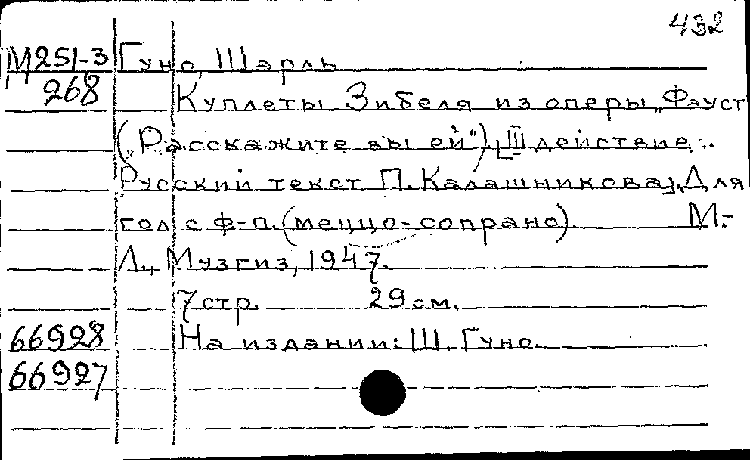 432
М251-3 Гуно, Шарль
268 Куплеты Зибеля из оперы "Фауст
("Расскажите вы ей"), III действие.
Русский текст П. Калашникова, Для
гол с ф-п. (меццо-сопрано). М.-
Л., Музгиз, 1947.
7 стр. 29 см.
66928 На издании: Ш. Гуно.
66927